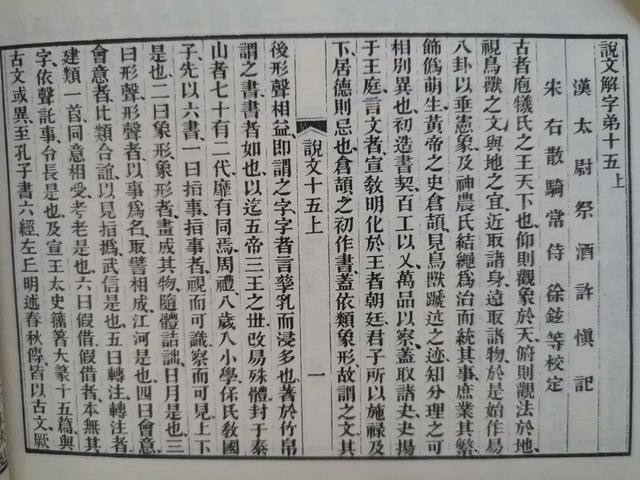 說文解字弟十五上
漢太尉祭酒許愼記
宋右散騎常侍徐鉉等校定
古者庖犧氏之王天下也仰則觀象於天俯則觀法於地
視鳥獸之文與地之宜近取諸身遠取諸物於是始作易
八卦以垂憲象及神農氏結繩爲治而統其事庶業其繁
飾僞萌生黃帝之史倉頡見鳥獸蹏迒之迹知分理之可
相別異也初造書契百工以乂萬品以察蓋取諸夬夬揚
于王庭言文者宣敎明化於王者朝廷君子所以施祿及
下居德則忌也倉頡之初作書蓋依類象形故謂之文其
說文十五上
一
後形聲相益卽謂之字字者言孳乳而浸多也著於竹帛
謂之書書者如也以迄五帝三王之世改易殊體封于泰
山者七十有二代靡有同焉周禮八歲入小學保氏敎國
子先以六書一曰指事指事者視而可識察而可見上下
是也二曰象形象形者畫成其物隨體詰詘日月是也三
曰形聲形聲者以事爲名取譬相成江河是也四曰會意
會意者比類合誼以見指撝武信是也五曰轉注轉注者
建類一首同意相受考老是也六曰假借假借者本無其
字依聲託事令長是也及宣王太史籒著大篆十五篇與
古文或異至孔子書六經左丘明述春秋傳皆以古文厥